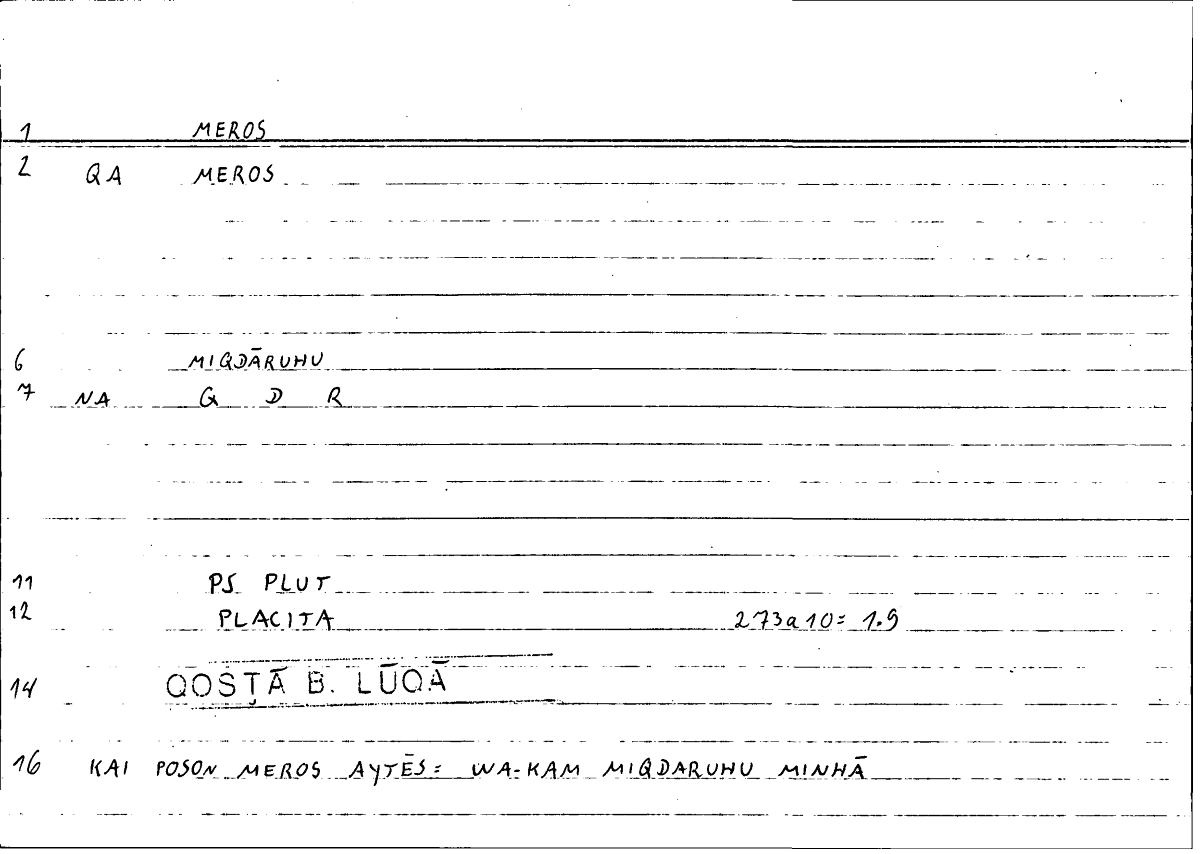 1 MEROS
2 QA MEROS
6 MIQDĀRUHU
7 NA Q D R
11 PS PLUT
12 PLACITA 273a10= 1.9
14 QOSṬĀ B. LŪQĀ
16 KAI POSON MEROS AYTĒS= WA-KAM MIQDARUHU MINHĀ